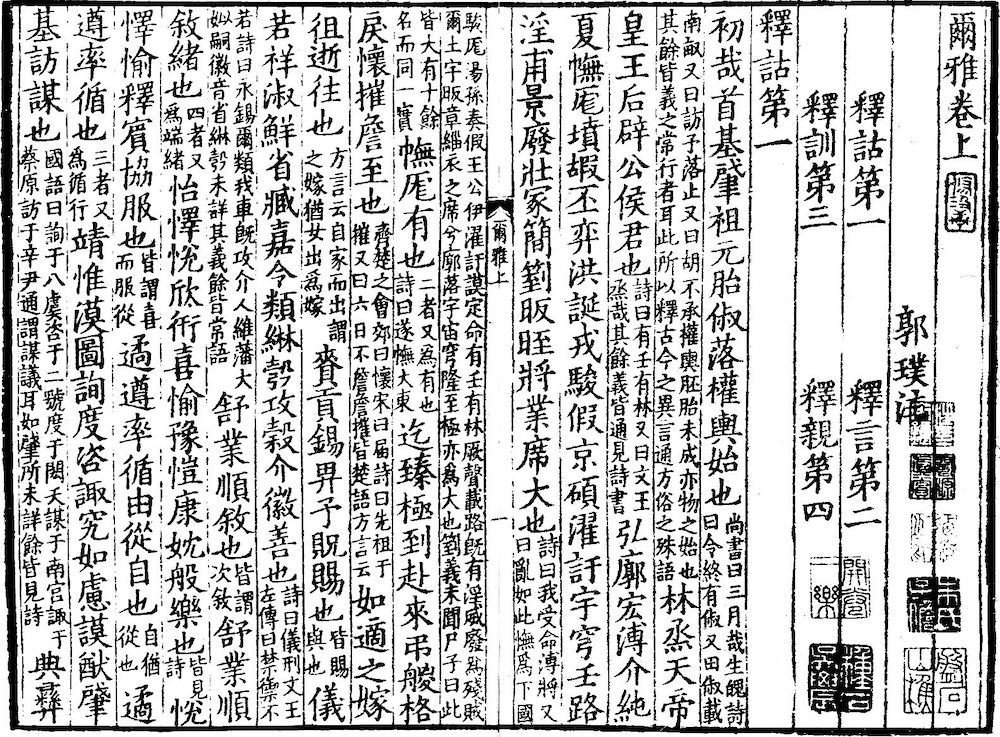 爾雅卷上
郭璞注
釋詁第一 釋言第二
釋訓第三 釋親第四
釋詁第一
初哉首基肈祖元胎俶落權輿始也尚書曰三月哉生魄詩曰令終有俶又曰俶載
南畝又曰訪予落止又曰胡不承權輿胚胎未成亦物之始也
其餘皆義之常行者耳此所以釋古今之異言通方俗之殊語林烝天帝
皇王后辟公侯君也詩曰有壬有林又曰文王烝哉其餘義皆通見詩書弘廓宏溥介純
夏幠厖墳嘏丕弈洪誕戎駿假京碩濯訏宇穹壬路
淫甫景廢壯冢簡箌昄晊將業席大也詩曰我受命溥將又曰亂如此幠爲下國
駿厖湯孫奏假王公伊濯訏謨定命有壬有林厥聲載路旣有淫威廢爲殘賊
爾土宇昄章緇衣之席兮廓落宇宙穹隆至極亦爲大也箌義未聞尸子曰此
皆大有十餘名而同一實幠厖有也二者又爲有也詩曰遂幠大東迄臻極到赴來弔艐格
戾懷摧詹至也齊楚之會郊曰懷宋曰屆詩曰先祖于摧又曰六日不詹詹摧皆楚語方言云如適之嫁
徂逝往也方言云自家而出謂之嫁猶女出爲嫁賚貢錫畀予貺賜也皆賜與也儀
若祥淑鮮省臧嘉令類綝彀攻穀介徽善也詩曰儀刑文王左傳曰禁禦不
若詩曰永錫爾類我車旣攻介人維藩大
姒嗣徽音省綝彀未詳其義餘皆常語舒業順敘也皆謂次敘舒業順
敘緒也四者又爲端緒怡懌悅欣衎喜愉豫愷康妉般樂也皆見詩悅
懌愉釋賓協服也皆謂喜而服從遹遵率循由從自也自猶從也遹
遵率循也三者又爲循行靖惟漠圖詢度咨諏究如慮謨猷肈
基訪謀也國語曰詢于八虞咨于二虢度于閎夭謀于南宮諏于蔡原訪于辛尹通謂謀議耳如肈所未詳餘皆見詩典彝
爾雅上
一